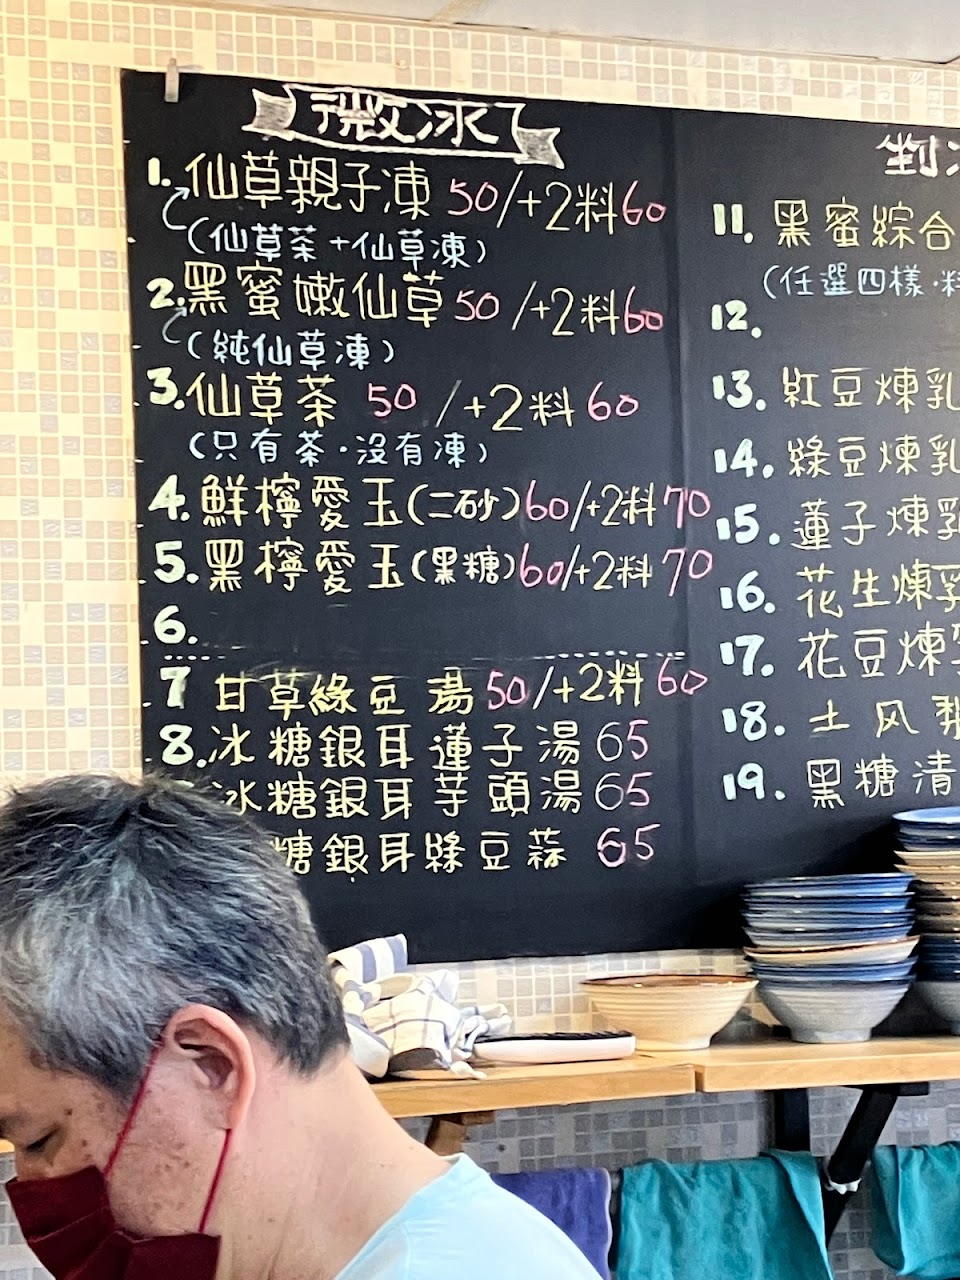 微冰
1. 仙草親子凍 50/+2料60
(仙草茶+仙草凍)
2. 黑蜜嫩仙草 50 /+2料60
(純仙草凍)
3. 仙草茶 50 /+2料 60
(只有茶·沒有凍)
4. 鮮檸愛玉(二砂)60/+2料 70
5. 黑檸愛玉(黑糖)60/+2料 70
6.
7 甘草綠豆湯 50/+2料 60
8. 冰糖銀耳蓮子湯 65
冰糖銀耳芋頭湯 65
糖銀耳綠豆蒜 65
剉
11. 黑蜜綜合
(任選四樣·料
12.
13. 紅豆煉乳
14. 綠豆煉乳
15. 蓮子煉乳
16. 花生煉乳
17. 花豆煉乳
18. 土风
19. 黑糖清